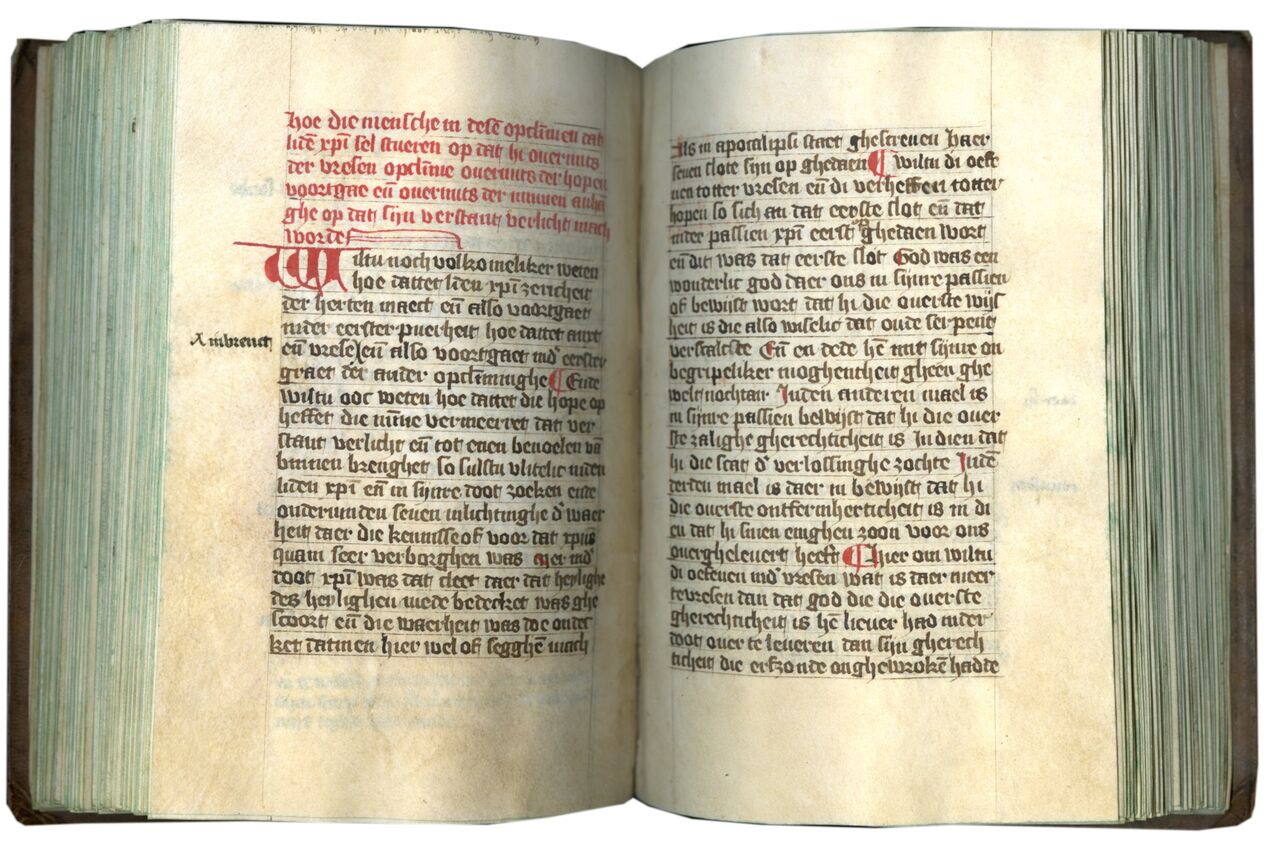 hoe die mensche in desē opclīmen dat
lidē xpī sel stueren op dat hi overmits
der vresen opclīme overmits der hopen
voortgae eñ overmits der minnen anhā
ghe op dat sijn verstant verlicht mach
worde
Wiltu noch volkomeliker weten
hoe dattet lidē xpī zericheit
der herten maect eñ also voortgaet
inder eerster puerheit hoe dattet anxt
eñ vrese eñ also voortgaet indʼ eerster
graet der ander opclimminghe Ende
wiltu ooc weten hoe dattet die hope op
heffet die minne vermeerret dat ver
stant verlicht eñ tot enen bevoelen vā
binnen brenghet so sulstu vlitelic inden
liden xpī eñ in sijnre doot zoeken ende
ondervinden seven inlichtinghe dʼ waer
heit daer die kennisse of voor dat xpūs
quam seer verborghen was mer indʼ
doot xpī was dat cleet daer dat heylighe
des heylighen mede bedecket was ghe
scoort eñ die waerheit was doe ontdec
ket datmen hier wel of segghē mach
Als in apocalipsi staet ghescreven haer
seven slote sijn op ghedaen Wiltu di oeff
nen totter vresen eñ di verheffen totter
hopen so sich an dat eerste slot eñ dat
inder passien xpī eerst op ghedaen wort
eñ dit was dat eerste slot God was een
wonderlic god daer ons in sijnre passien
of bewijst wort dat hi die overste wijs
heit is die also wiselic dat oude serpent
verscalcste Eñ en dede hē mit sijnre on
begripeliker moghentheit gheen ghe
welt nochtan Inden anderen mael is
in sijnre passien bewijst dat hi die over
ste zalighe gherechticheit is In dien dat
hi die scat dʼ verlossinghe zochte Indē
derden mael is daer in bewijst dat hi
die overste ontfermherticheit is in di
en dat hi sinen enighen zoon voor ons
overghelevert heeft Hier om wiltu
di oefenen indʼ vresen wat is daer meer
te vresen dan dat god die die overste
gherechticheit is hē liever had inder
doot over te leveren dan sijn gherech
ticheit die erfzonde onghewrokē hadde